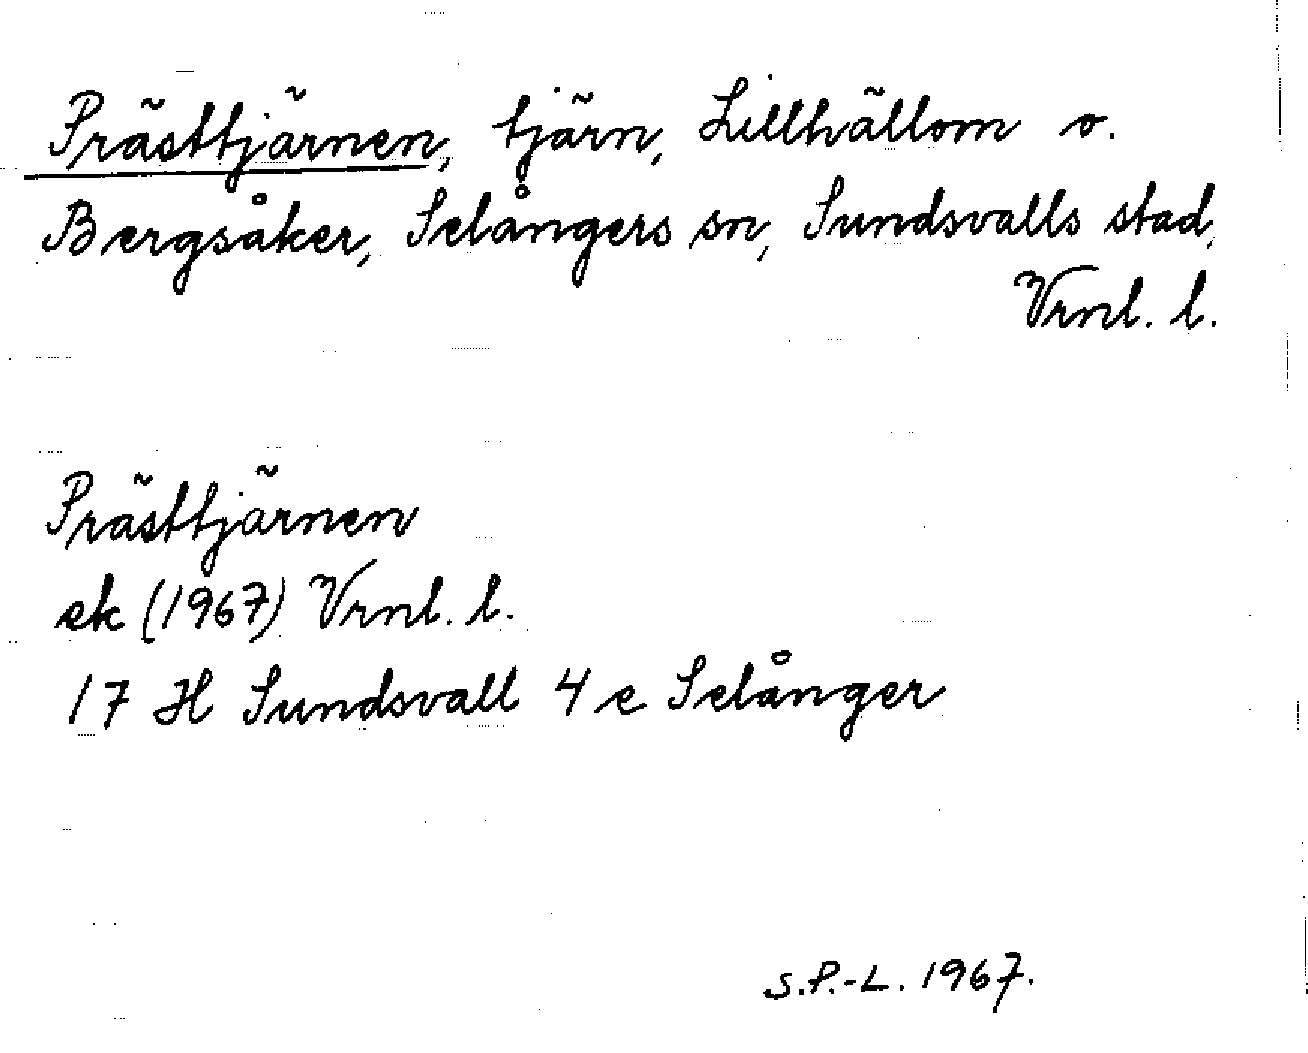 Prästtjärnen, tjärn, Lillhällom o.
Bergsåker, Selångers sn, Sundsvalls stad,
Vrnl. l.
Prästtjärnen
ek (1967) Vrnl. l.
17 H Sundsvall 4 e Selånger
S.P.-L. 1967.